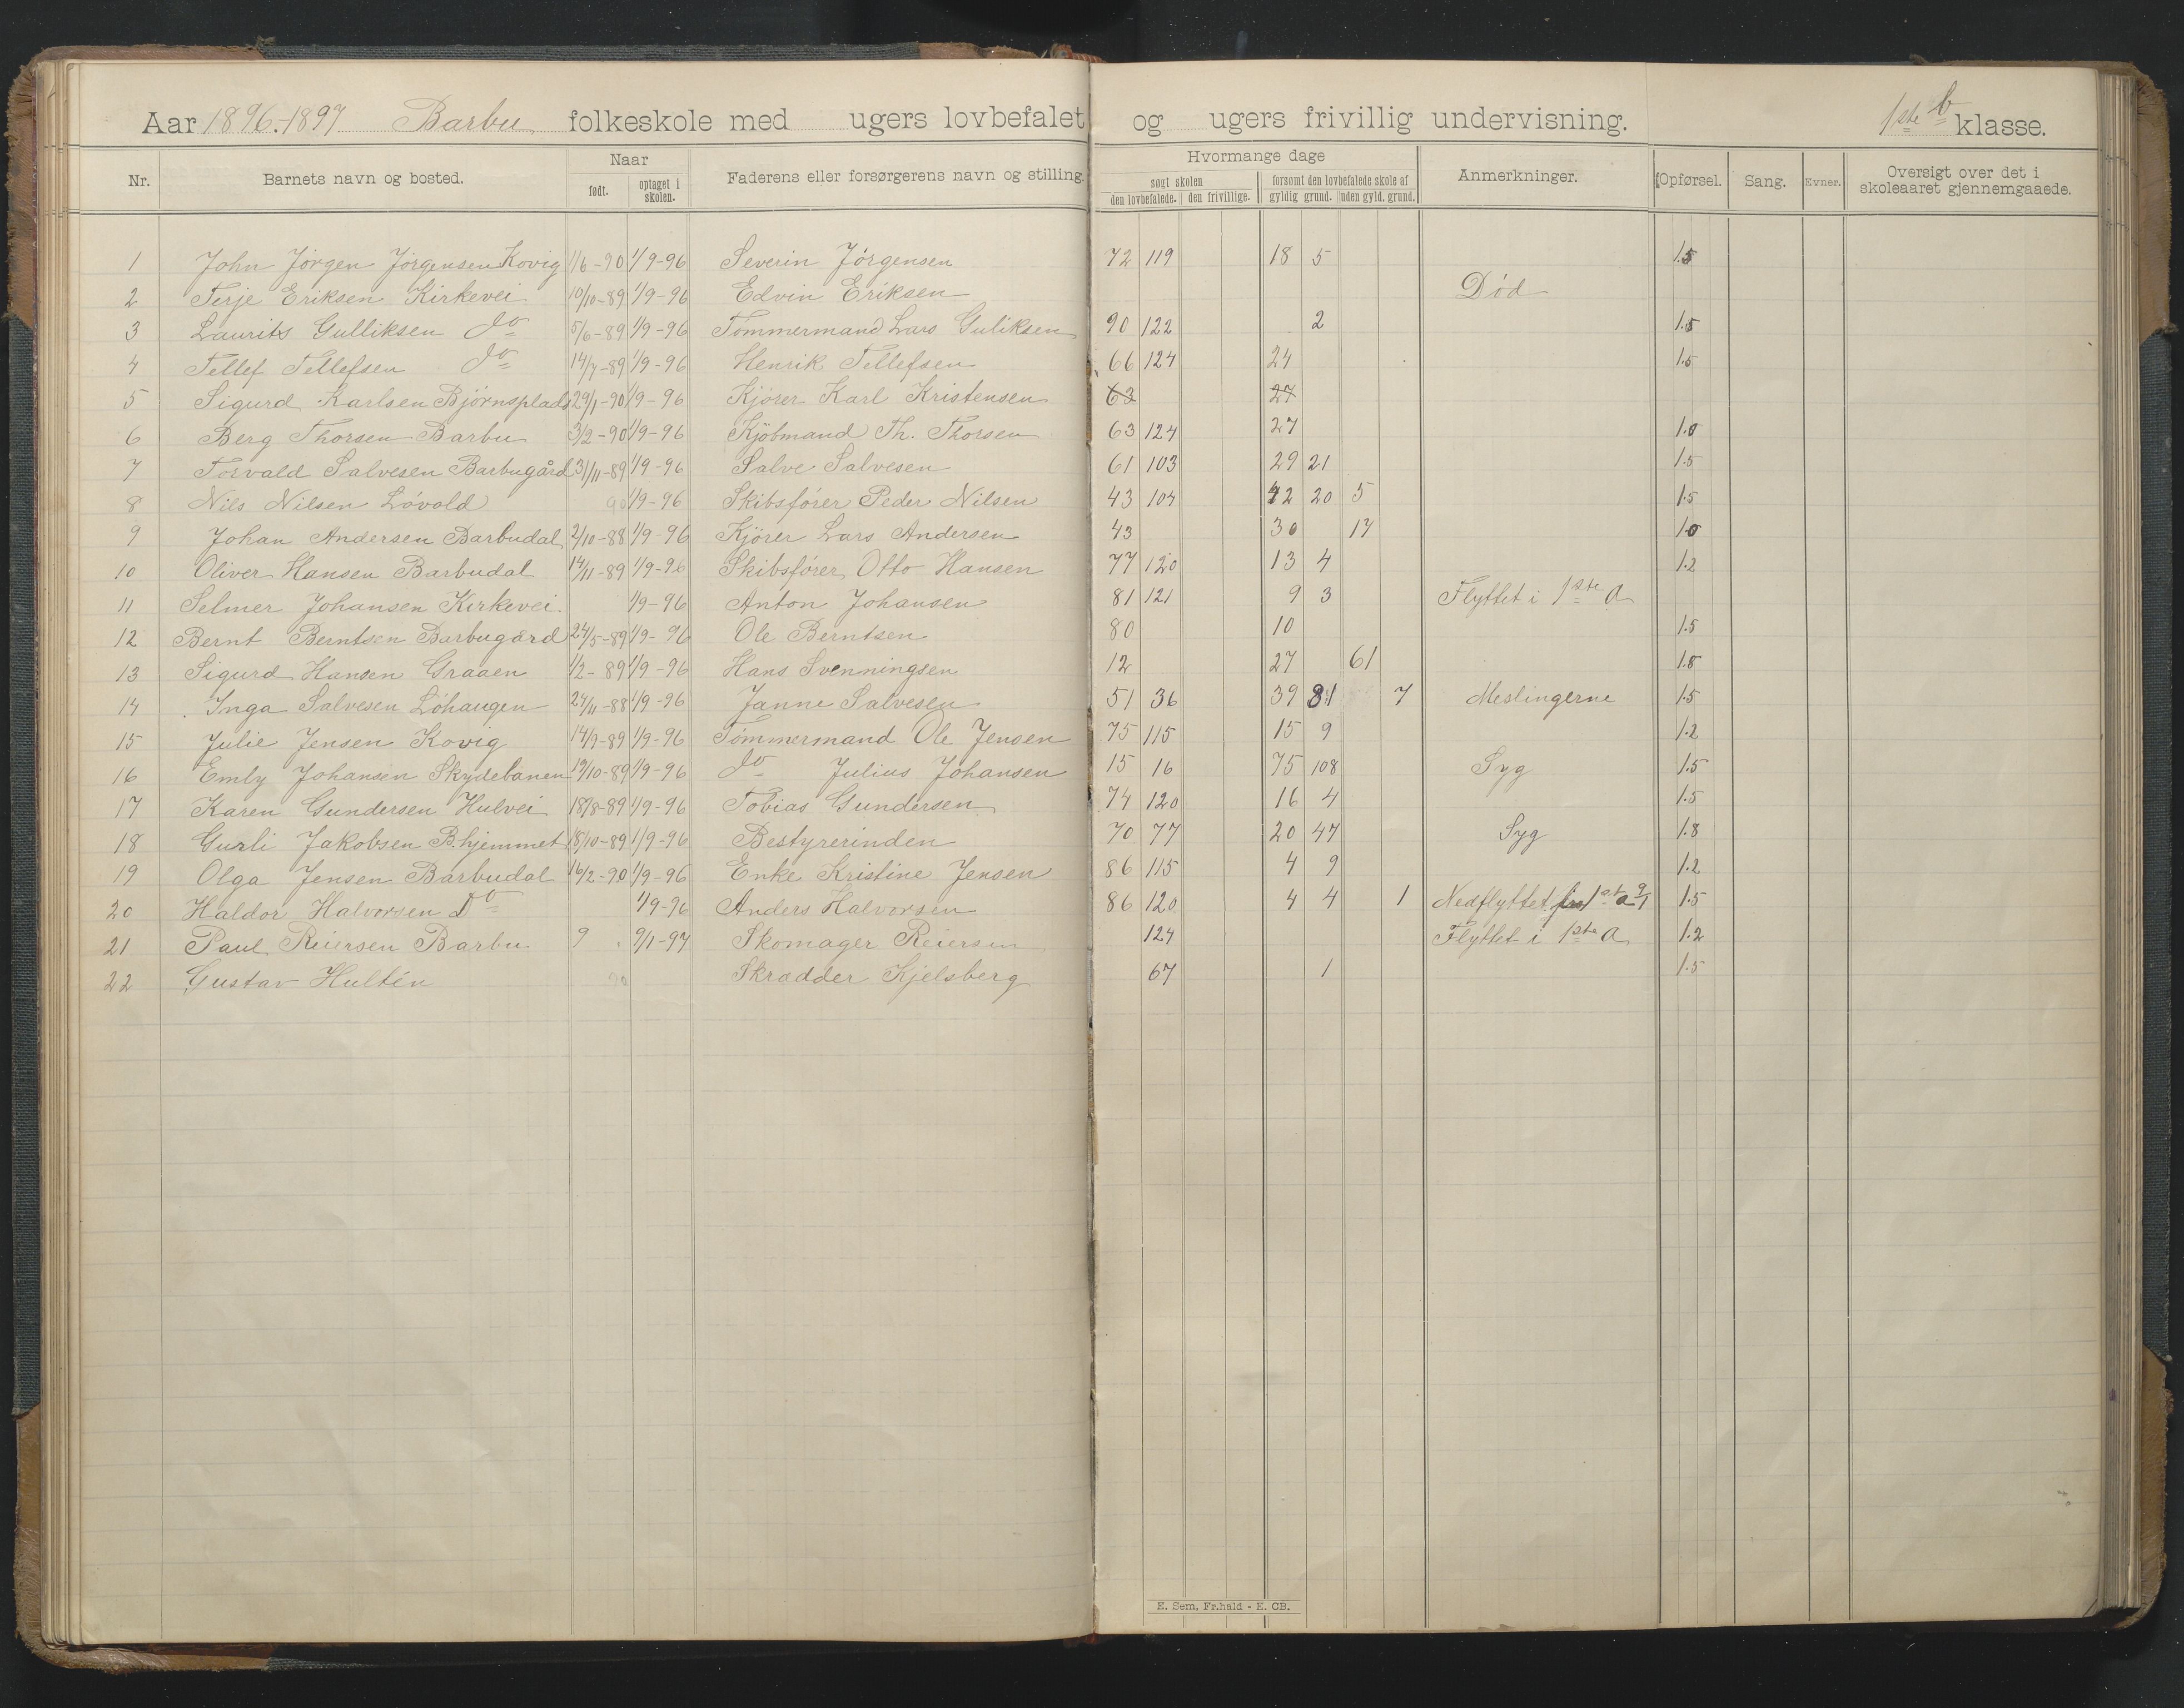 Aar 1896-1897 Barbu folkeskole med ugers lovbefalet og ugers frivillig undervisning. 1ste b klasse.
Nr. Barnets navn og bosted. Naar født. optaget i skolen. Faderens eller forsørgerens navn og stilling. Hvormange dage søgt skolen den lovbefalede. den frivillige. forsømt den lovbefalede skole af gyldig grund. uden gyld. grund. Anmerkninger. Opførsel. Sang. Evner. Oversigt over det i skoleaaret gjennemgaaede.
1 John Jörgen Jörgensen Kovig 1/6-90 1/9-96 Severin Jörgensen 72 119 18 5 1.5
2 Terje Eriksen Kirkevei 10/10-89 1/9-96 Edvin Eriksen Död
3 Laurits Gulliksen do 5/6-89 1/9-96 Tömmermand Lars Guliksen 90 122 2 1.5
4 Tellef Tellefsen do 14/7-89 1/9-96 Henrik Tellefsen 66 124 24 1.5
5 Sigurd Karlsen Björnsplads 29/1-90 1/9-96 Kjörer Karl Kristensen 63 27
6 Berg Thorsen Barbu 3/2-90 1/9-96 Kjöbmand Th. Thorsen 63 124 27 1.0
7 Torvald Salvesen Barbugård 31/11-89 1/9-96 Salve Salvesen 61 103 29 21 1.5
8 Nils Nilsen Lövold 90 1/9-96 Skibsförer Peder Nilsen 43 104 42 20 5 1.5
9 Johan Andersen Barbudal 2/10-88 1/9-96 Kjörer Lars Andersen 43 30 17 1.0
10 Oliver Hansen Barbudal 14/11-89 1/9-96 Skibsförer Otto Hansen 77 120 13 4 1.2
11 Selmer Johansen Kirkevei 1/9-96 Anton Johansen 81 121 9 3 Flyttet i 1ste a
12 Bernt Berntsen Barbugård 24/5-89 1/9-96 Ole Berntsen 80 10 1.5
13 Sigurd Hansen Graaen 1/2-89 1/9-96 Hans Svenningsen 12 27 61 1.8
14 Inga Salvesen Löhaugen 24/11-88 1/9-96 Janne Salvesen 51 36 39 81 7 Meslingerne 1.5
15 Julie Jensen Kovig 14/9-89 1/9-96 Tömmermand Ole Jensen 75 115 15 9 1.2
16 Emly Johansen Skydebanen 19/10-89 1/9-96 do Julius Johansen 15 16 75 108 Syg 1.5
17 Karen Gundersen Hulvei 18/8-89 1/9-96 Tobias Gundersen 74 120 16 4 1.5
18 Gurli Jakobsen B.hjemmet 18/10-89 1/9-96 Bestyrerinden 70 77 20 47 Syg 1.8
19 Olga Jensen Barbudal 16/2-90 1/9-96 Enke Kristine Jensen 86 115 4 9 1.2
20 Haldor Halvorsen Do 1/9-96 Anders Halvorsen 86 120 4 4 1 Nedflyttet fra 1st a 9/1 1.5
21 Paul Reiersen Barbu 9 9/1-97 Skomager Reiersen 124 Flyttet i 1ste a 1.2
22 Gustav Hultén 90 Skradder Kjelsberg 67 1 1.5
E. Sem, Fr.hald - E. CB.